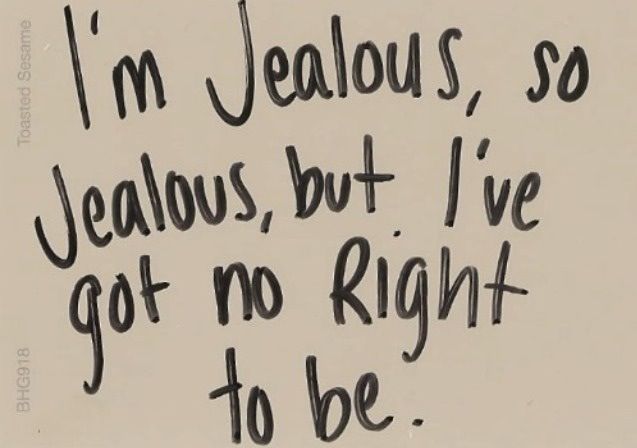 I'm Jealous, so
Jealous, but I've
got no Right
to be.
Toasted Sesame
BHG918